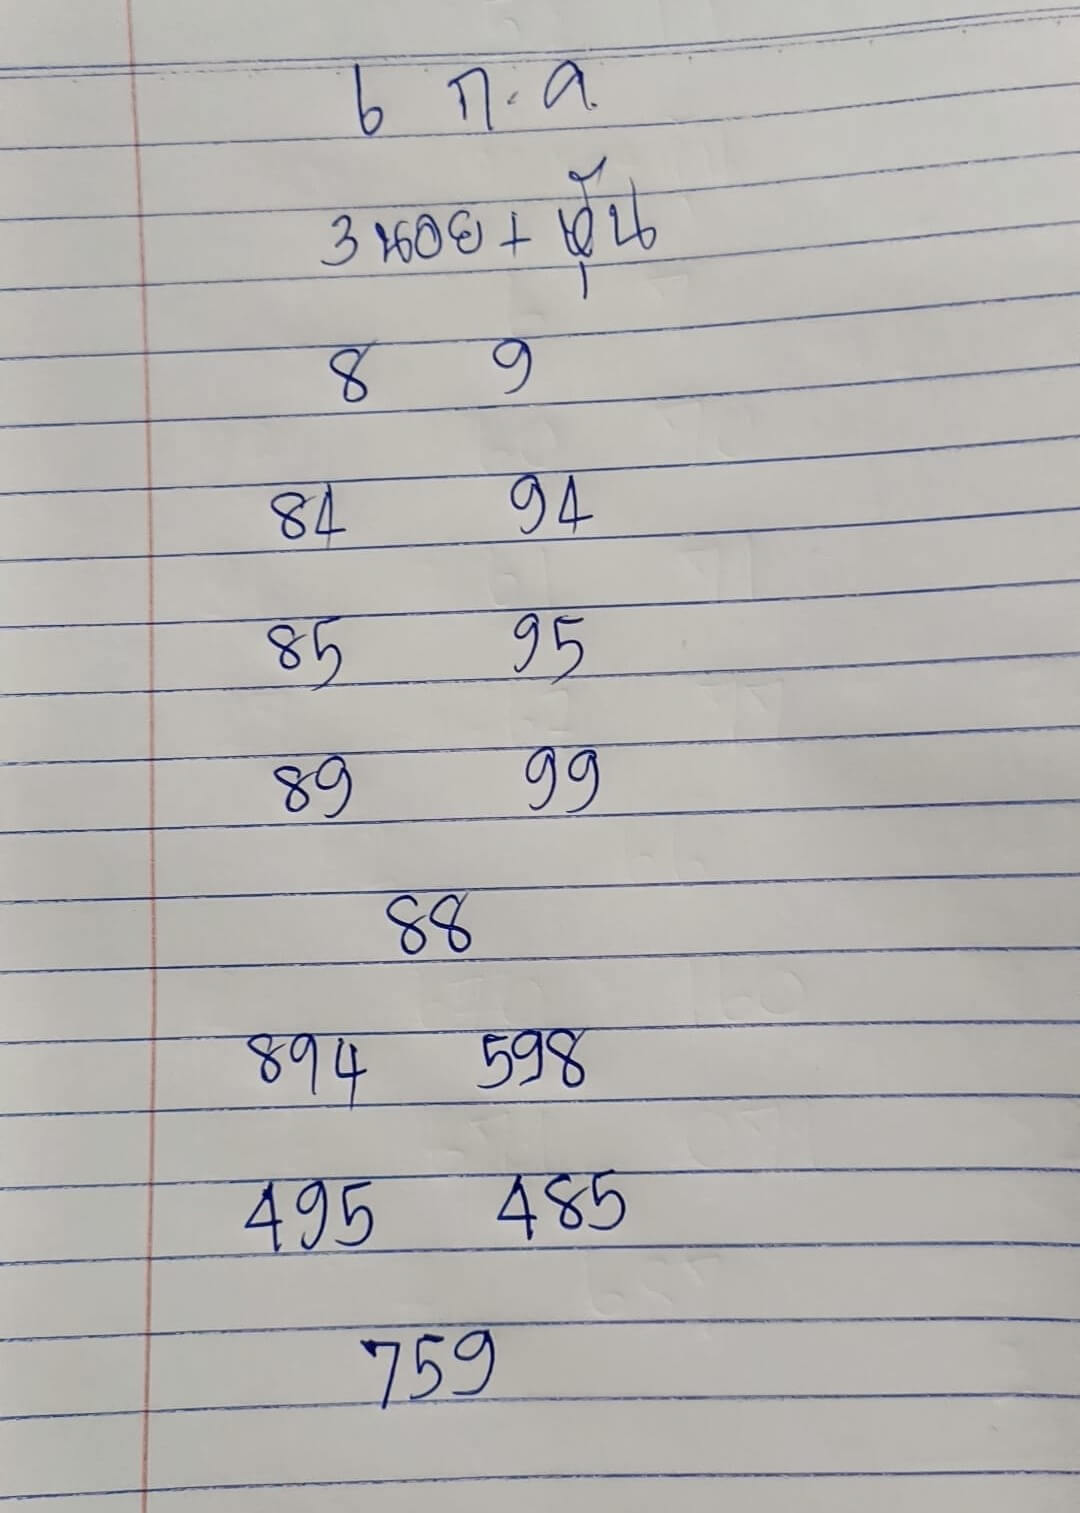 6 ก.ค.
3 นอย + หุ้น
8 9
84 94
85 95
89 99
88
894 598
495 485
759